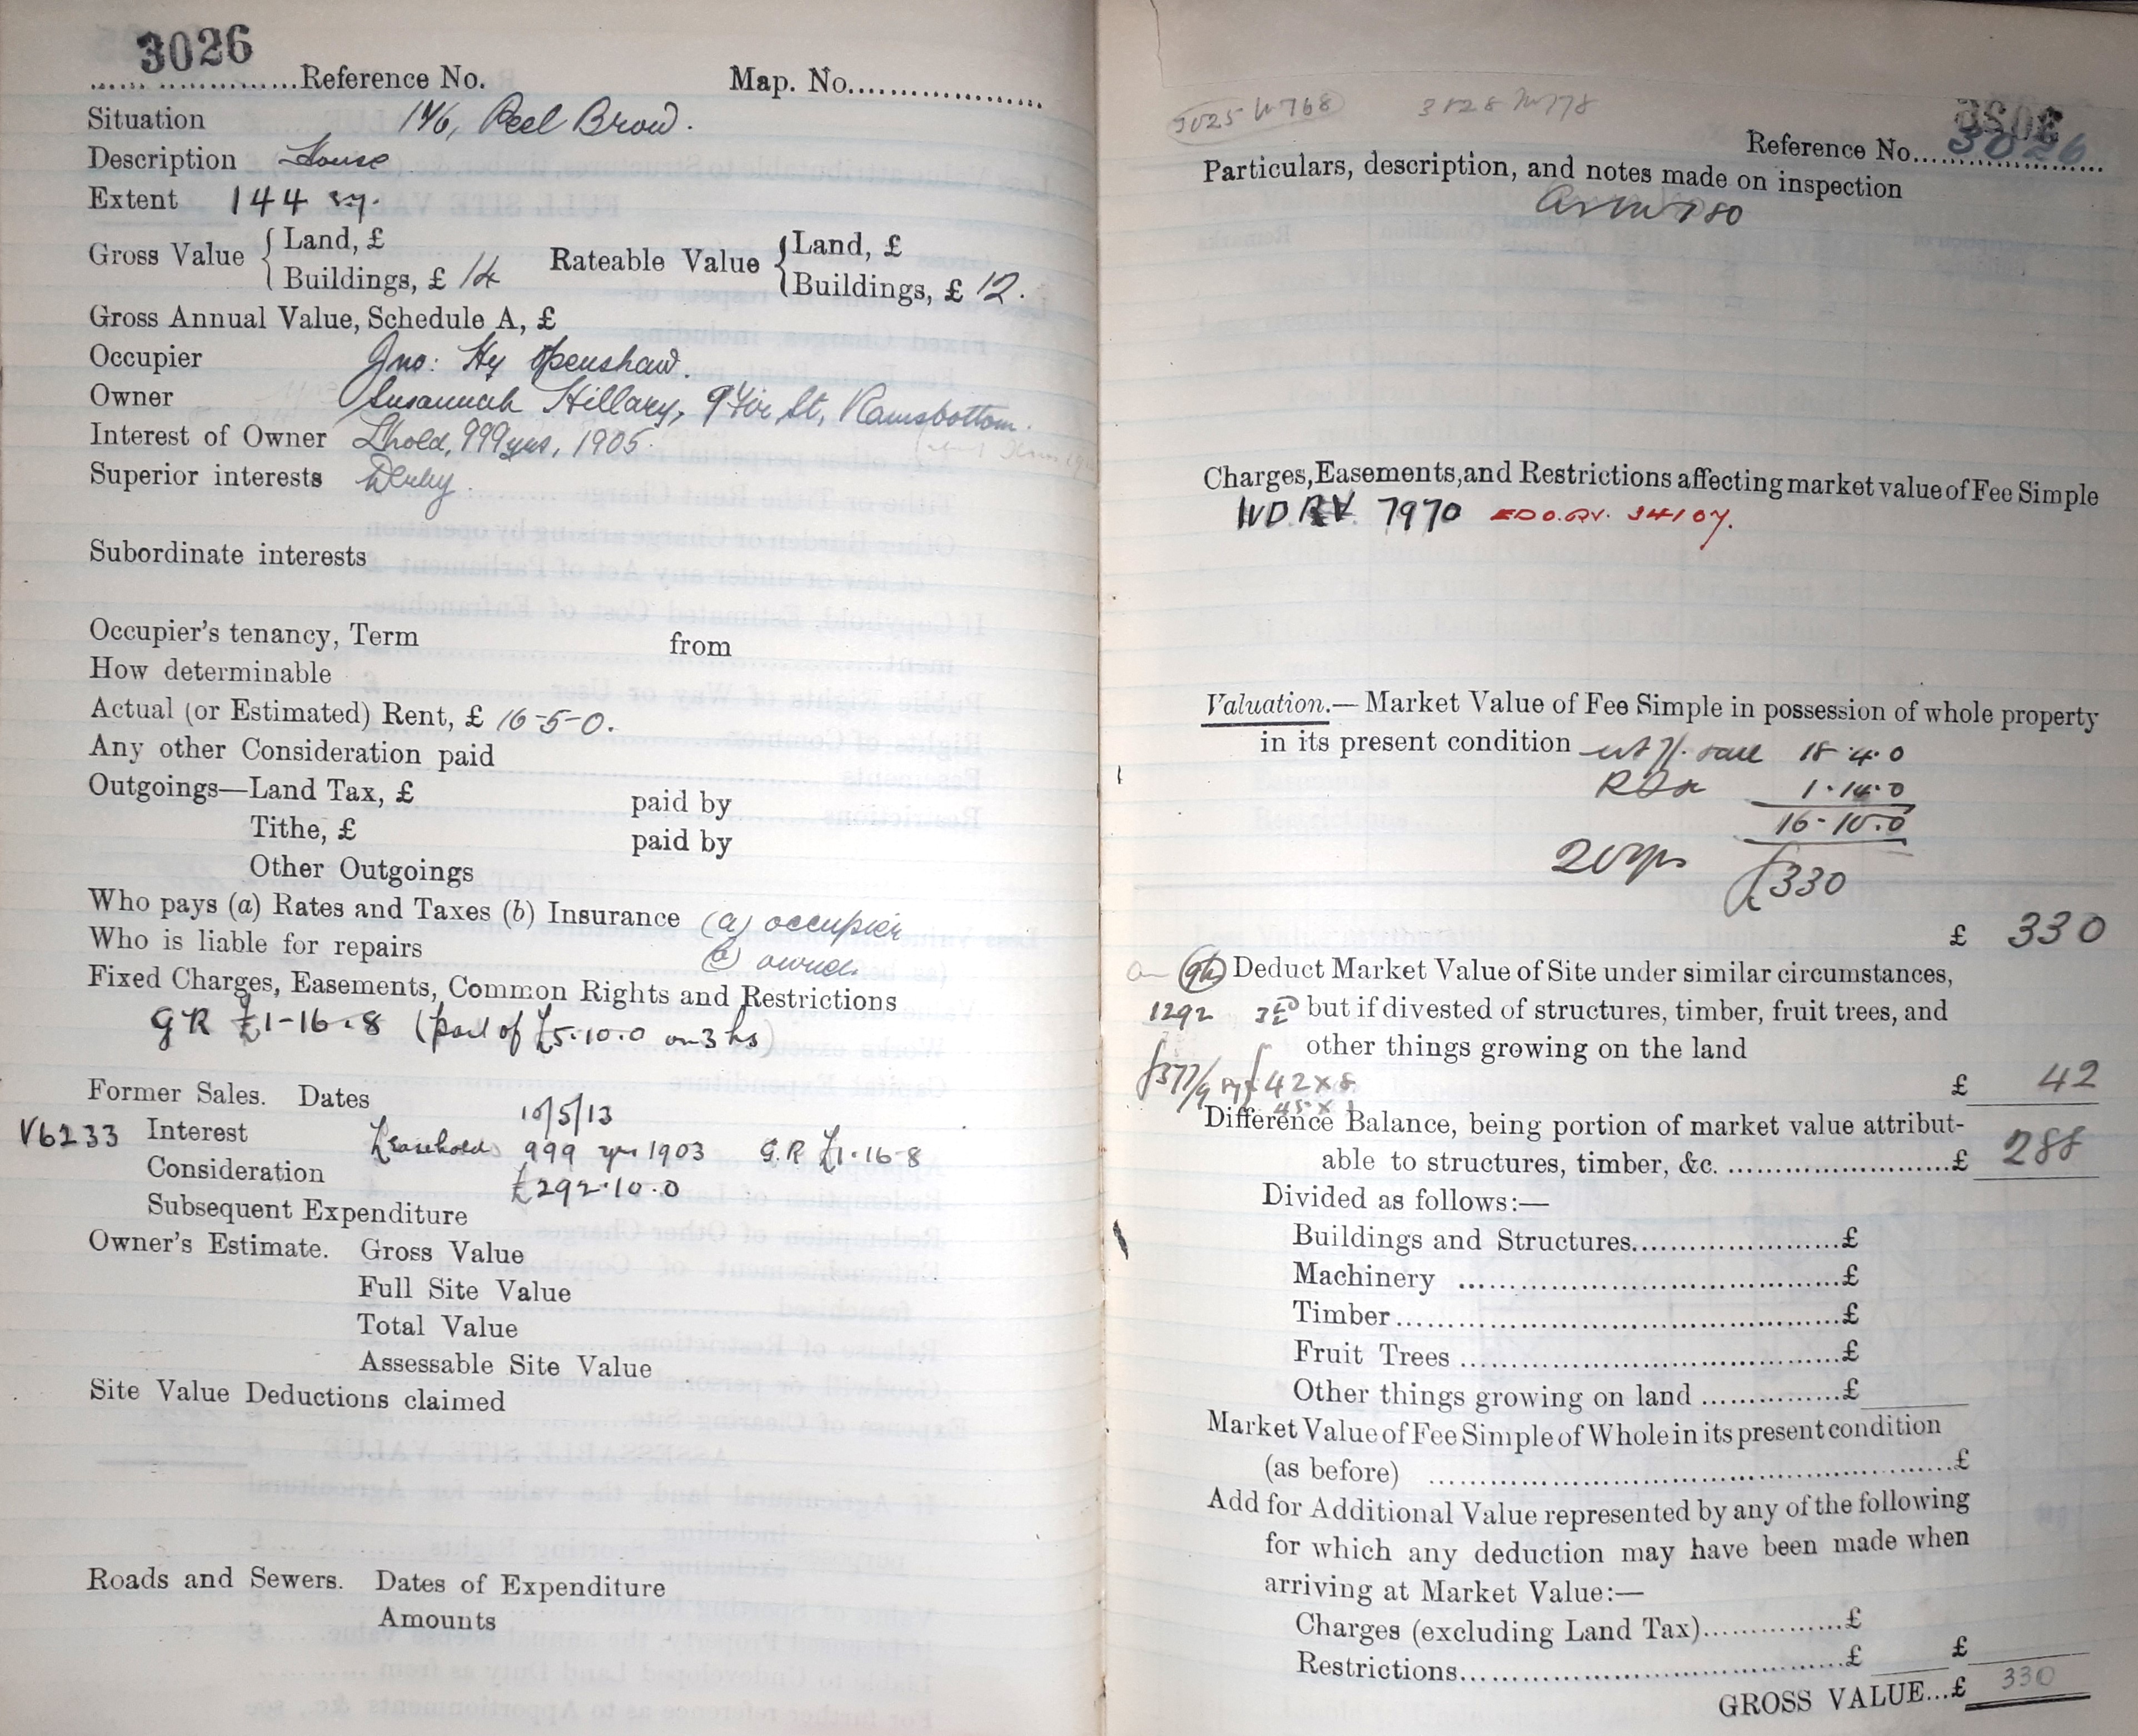 3026
Reference No. Map. No.
Situation 146, Peel Brow.
Description House
Extent 144 sy.
Gross Value { Land, £ Rateable Value { Land, £
Buildings, £ 14 Buildings, £ 12.
Gross Annual Value, Schedule A, £
Occupier Jno: Hy Openshaw.
Owner Susannah Hillary, 9 St, Ramsbottom.
Interest of Owner Lhold, 999 yrs, 1905.
Superior interests Derby
Subordinate interests
Occupier's tenancy, Term from
How determinable
Actual (or Estimated) Rent, £ 16-5-0.
Any other Consideration paid
Outgoings—Land Tax, £ paid by
Tithe, £ paid by
Other Outgoings
Who pays (a) Rates and Taxes (b) Insurance (a) occupier
Who is liable for repairs owner.
Fixed Charges, Easements, Common Rights and Restrictions
GR £1-16.8 (part of £5.10.0 on 3 hs)
Former Sales. Dates 10/5/13
V6233 Interest Leasehold 999 yrs 1903 G.R £1.16-8
Consideration £292.10.0
Subsequent Expenditure
Owner's Estimate. Gross Value
Full Site Value
Total Value
Assessable Site Value
Site Value Deductions claimed
Roads and Sewers. Dates of Expenditure
Amounts
3026
Reference No.
Particulars, description, and notes made on inspection
Charges, Easements, and Restrictions affecting market value of Fee Simple
7970
Valuation.— Market Value of Fee Simple in possession of whole property
in its present condition 18.4.0
1.14.0
16-10.0
20yp £330
£ 330
Deduct Market Value of Site under similar circumstances,
1292 but if divested of structures, timber, fruit trees, and
other things growing on the land
£ 42
Difference Balance, being portion of market value attribut-
able to structures, timber, &c. £ 288
Divided as follows:—
Buildings and Structures £
Machinery £
Timber £
Fruit Trees £
Other things growing on land £
Market Value of Fee Simple of Whole in its present condition
(as before) £
Add for Additional Value represented by any of the following
for which any deduction may have been made when
arriving at Market Value:—
Charges (excluding Land Tax) £
Restrictions £ £
GROSS VALUE...£ 330